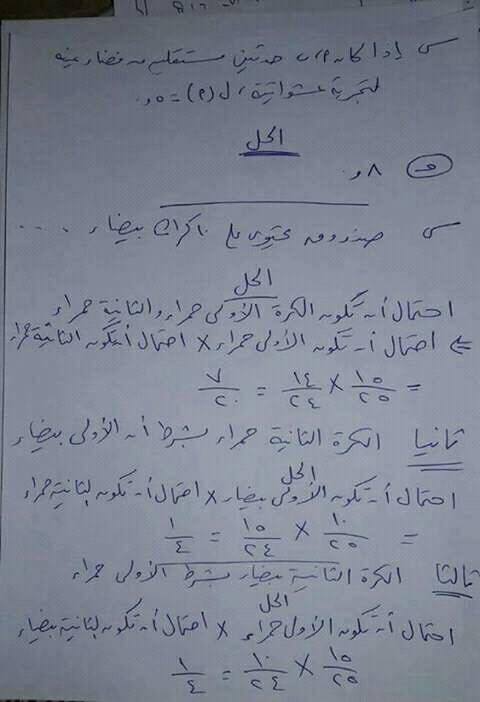 س إذا كان م، ب حدثين مستقلين من فضاء عينه
لتجربة عشوائية، ل(م) = ٥و
الحل
٨و
س صندوق يحتوى على ١٠ كرات بيضاء ....
الحل
احتمال أن تكون الكرة الأولى حمراء والثانية حمراء
احتمال أن تكون الأولى حمراء × احتمال أن تكون الثانية حمراء
= ١٥/٢٥ × ١٤/٢٤ = ٧/٢٠
ثانيا الكرة الثانية حمراء بشرط أن الأولى بيضاء
الحل
احتمال أن تكون الأولى بيضاء × احتمال أن تكون الثانية حمراء
= ١٠/٢٥ × ١٥/٢٤ = ١/٤
ثالثا الكرة الثانية بيضاء بشرط الأولى حمراء
الحل
احتمال أن تكون الأولى حمراء × احتمال أن تكون الثانية بيضاء
١٥/٢٥ × ١٠/٢٤ = ١/٤